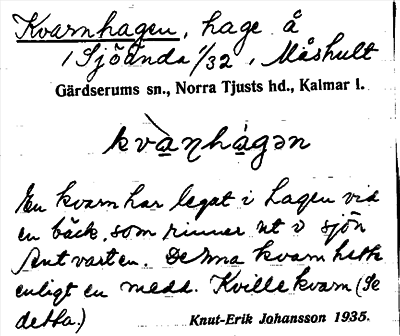 Kvarnhagen, hage å
i Sjöända 1/32, Måshult
Gärdserums sn., Norra Tjusts hd., Kalmar l.
kvàṇhágən
En kvarn har legat i hagen vid
en bäck, som rinner ut i sjön
Antvarten. Denna kvarn hette
enligt en medd. Kvillekvarn (Se
detta.)
Knut-Erik Johansson 1935.